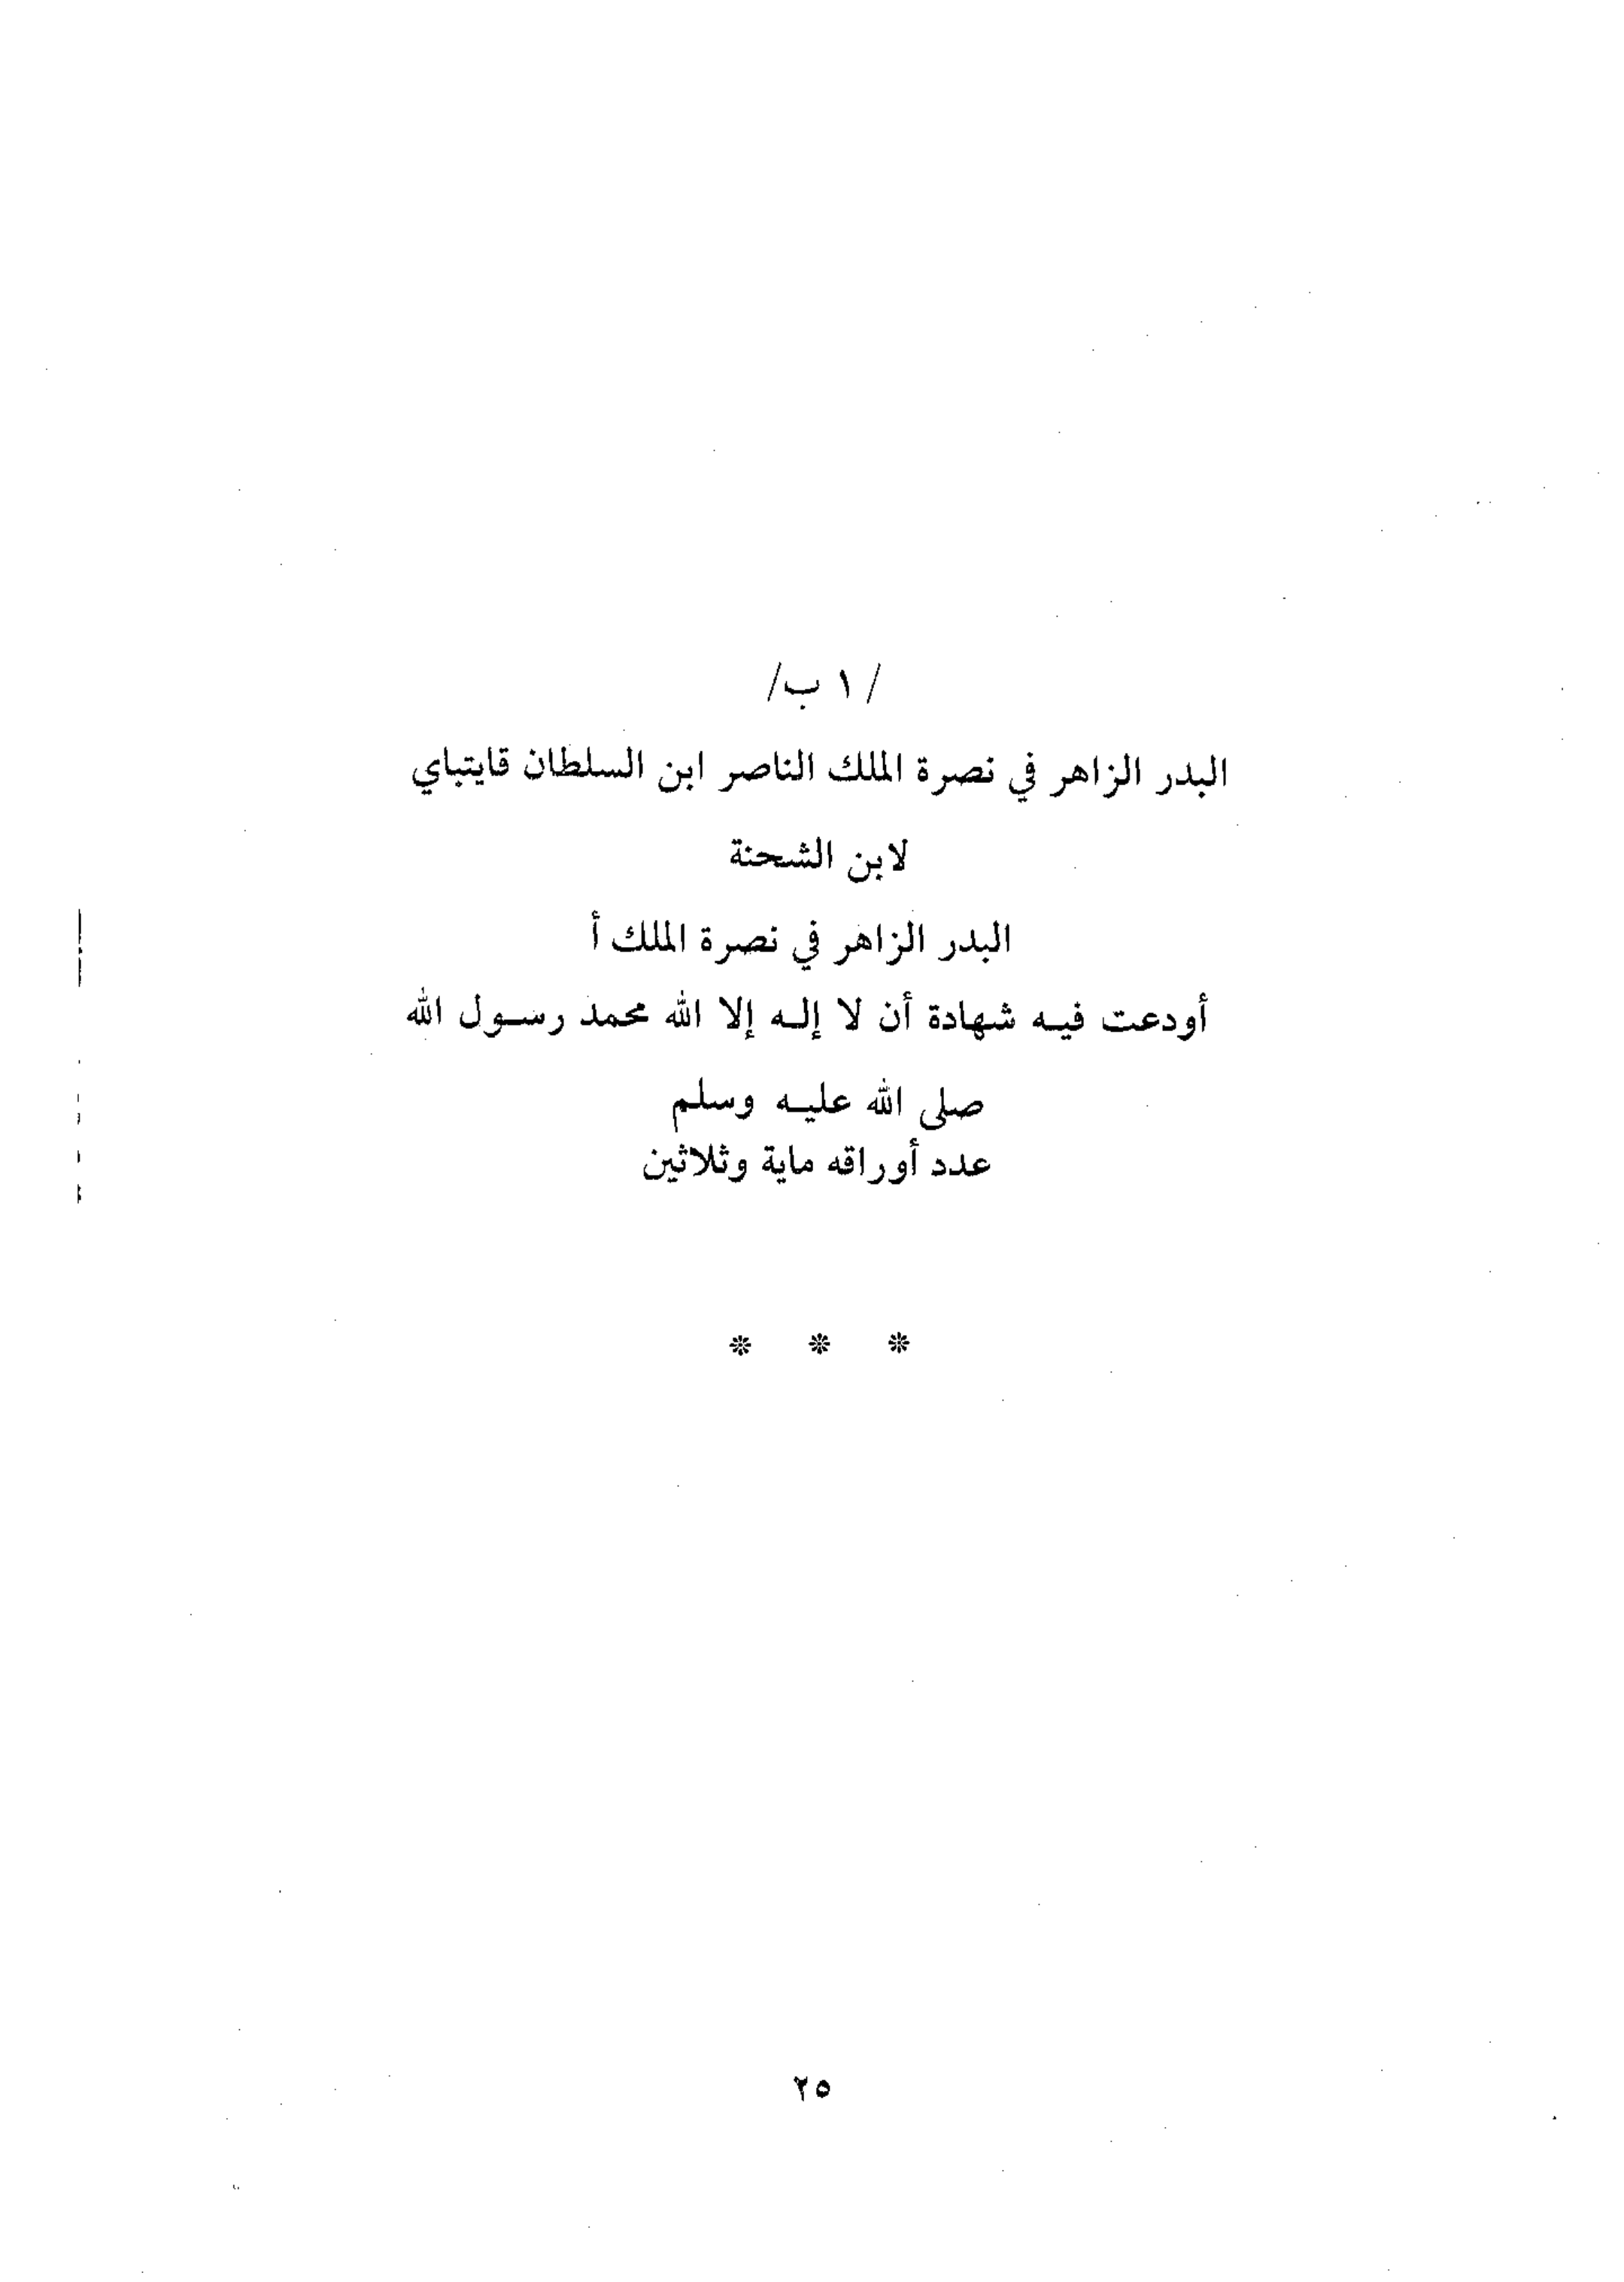 / ١ ب/
البدر الزاهر في نصرة الملك الناصر ابن السلطان قايتباي
لابن الشحنة
البدر الزاهر في نصرة الملك أ
أودعت فيه شهادة أن لا إله إلا الله محمد رسول الله
صلى الله عليه وسلم
عدد أوراقه ماية وثلاثين
* * *
٢٥